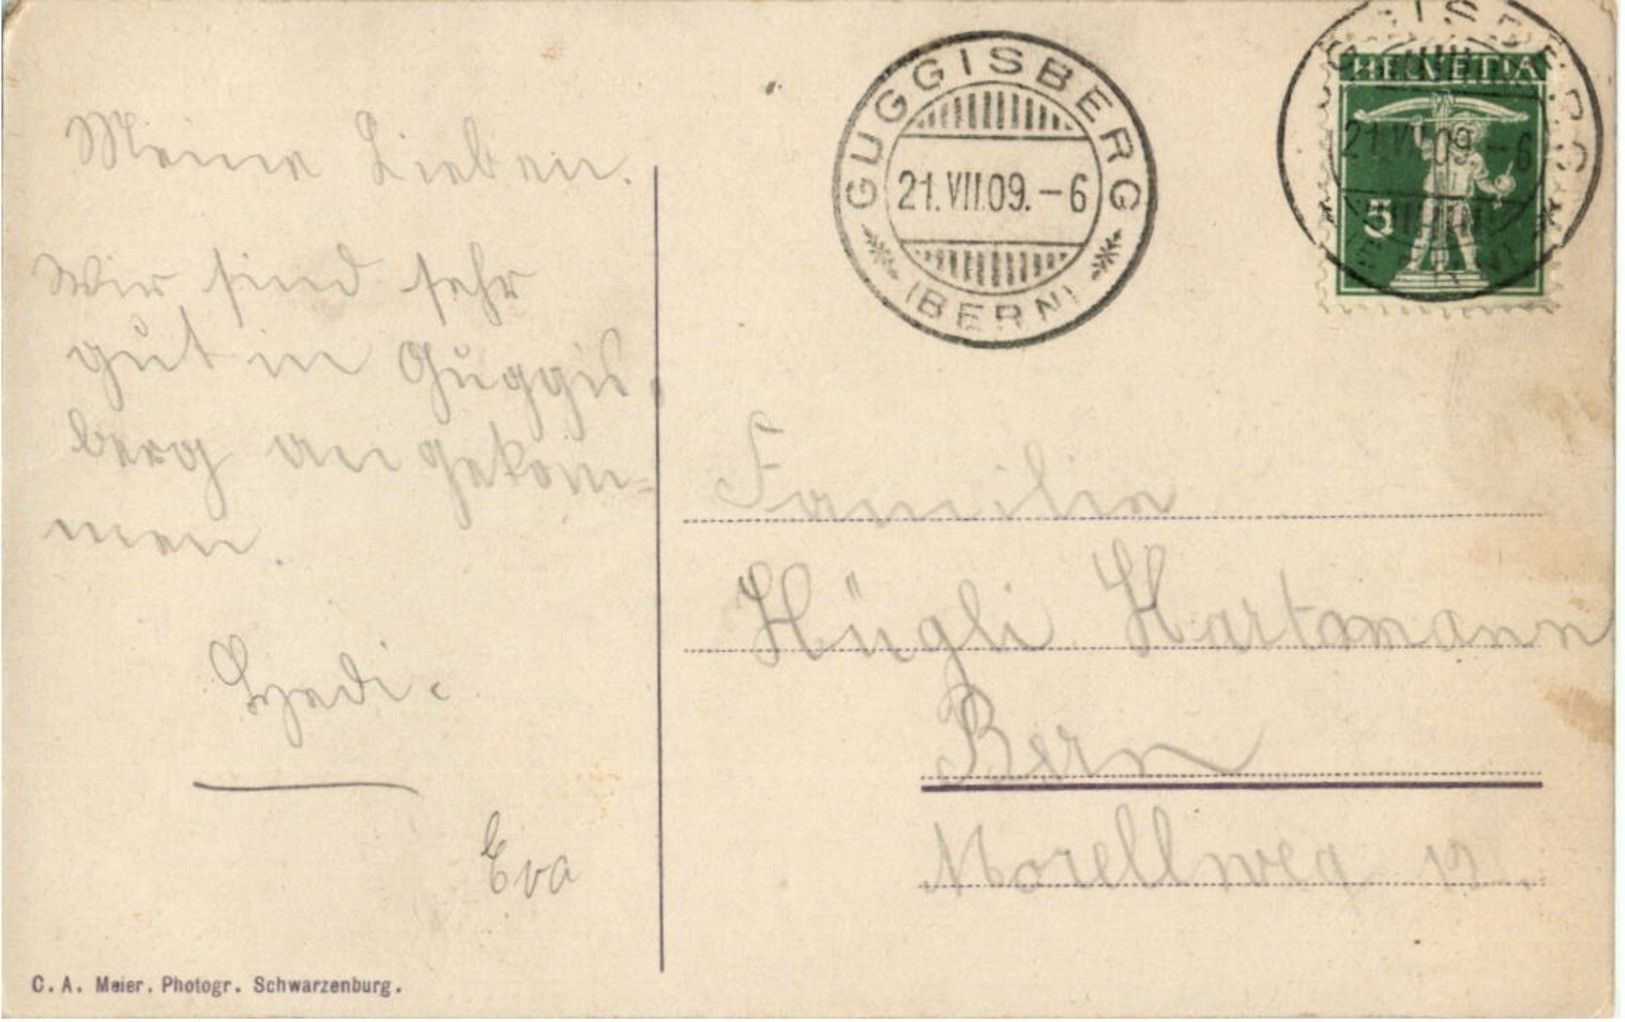 Meine Lieben.
Wir sind sehr
gut in Guggis-
berg angekom-
men.
Hedi.
Eva
C. A. Meier. Photogr. Schwarzenburg.
GUGGISBERG
21.VII.09.-6
(BERN)
HELVETIA
5
21.VII.09.-6
Familie
Hügli Hartmann
Bern
Morellweg 12.